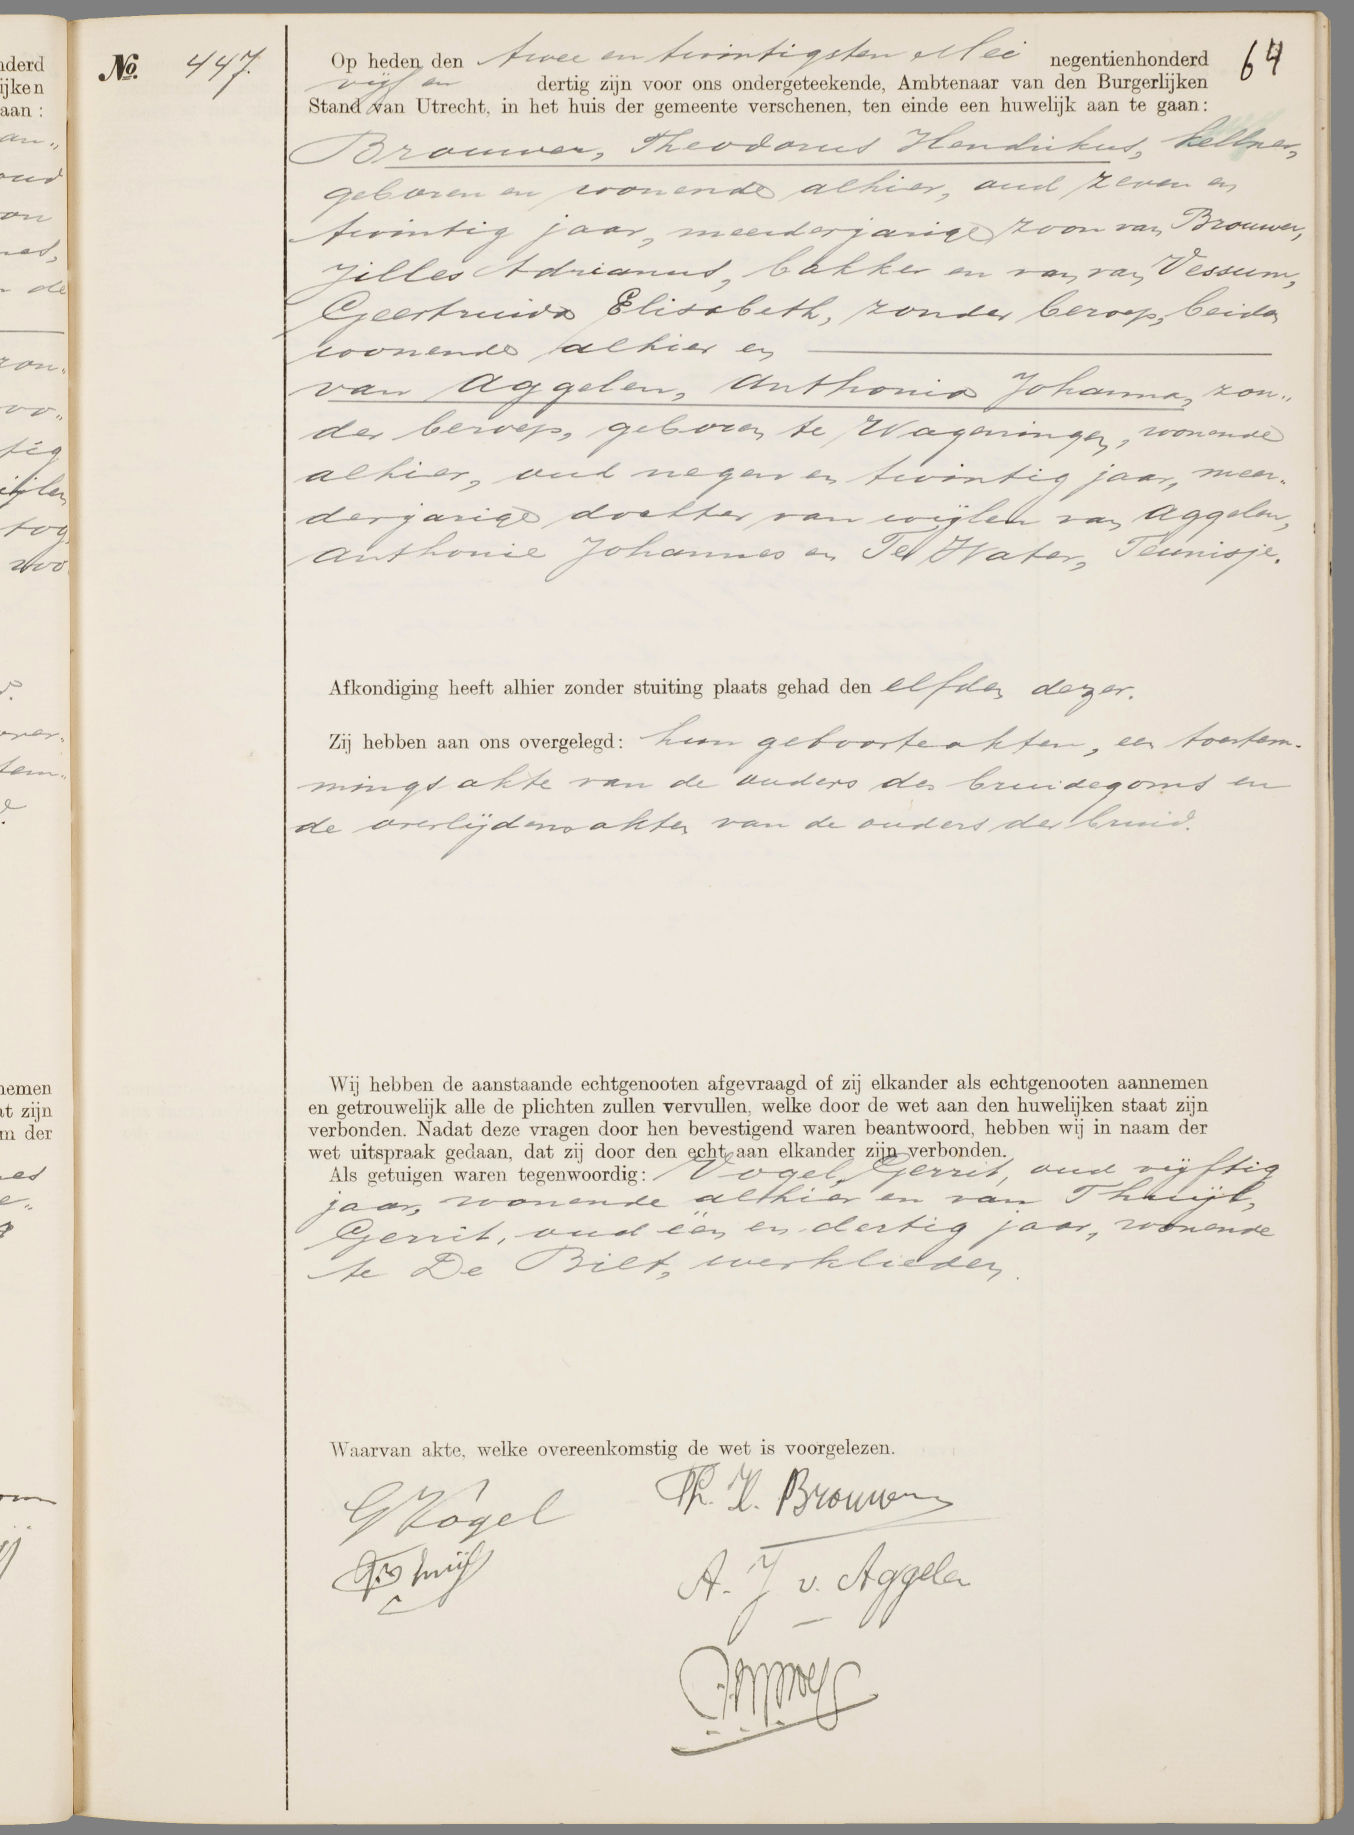 No. 447.
64
Op heden den twee en twintigsten Mei negentienhonderd
vijf en dertig zijn voor ons ondergeteekende, Ambtenaar van den Burgerlijken
Stand van Utrecht, in het huis der gemeente verschenen, ten einde een huwelijk aan te gaan:
Brouwer, Theodorus Hendrikus, kellner,
geboren en wonende alhier, oud zeven en
twintig jaar, meerderjarige zoon van Brouwer,
Jilles Adrianus, bakker en van van Vessum,
Geertruida Elisabeth, zonder beroep, beiden
wonende alhier en
van Aggelen, Anthonia Johanna, zon„
der beroep, geboren te Wageningen, wonende
alhier, oud negen en twintig jaar, meer„
derjarige dochter van wijlen van Aggelen,
Anthonie Johannes en Te Water, Teunisje.
Afkondiging heeft alhier zonder stuiting plaats gehad den elfden dezer.
Zij hebben aan ons overgelegd: hun geboorteakten, een toestem-
mingsakte van de ouders des bruidegoms en
de overlijdensakten van de ouders der bruid.
Wij hebben de aanstaande echtgenooten afgevraagd of zij elkander als echtgenooten aannemen
en getrouwelijk alle de plichten zullen vervullen, welke door de wet aan den huwelijken staat zijn
verbonden. Nadat deze vragen door hen bevestigend waren beantwoord, hebben wij in naam der
wet uitspraak gedaan, dat zij door den echt aan elkander zijn verbonden.
Als getuigen waren tegenwoordig: Vogel, Gerrit, oud vijftig
jaar, wonende alhier en van Thuijl,
Gerrit, oud één en dertig jaar, wonende
te De Bilt, werklieden.
Waarvan akte, welke overeenkomstig de wet is voorgelezen.
G Vogel
Th. H. Brouwer
A. J v. Aggelen